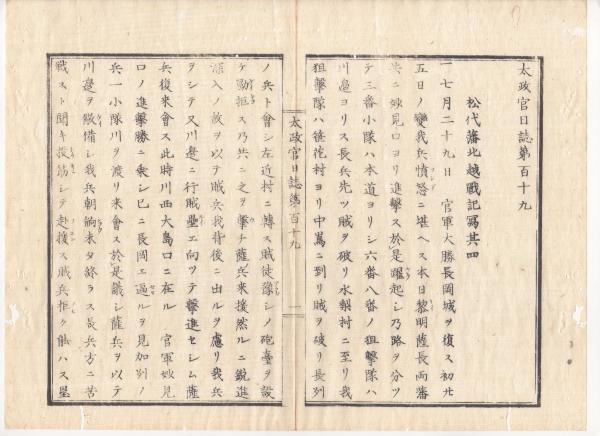 太政官日誌第百十九
松代藩北越戰記寫其四
一七月二十九日 官軍大勝長岡城ヲ復ス初廿
五日ノ變我兵憤怒ニ堪ヘス本日黎明薩長両藩
共ニ妙見口ヨリ進撃ス於是躍起シ乃路ヲ分ツ
テ三番小隊ハ本道ヨリシ六番八番ノ狙撃隊ハ
川邉ヨリス長兵先ツ賊ヲ破リ水梨村ニ至リ我
狙撃隊ハ村ヨリ中嶌ニ到リ賊ヲ破リ長列
太政官日誌第百十九
一
ノ兵ト會シ左近村ニ轉ス賊徒豫シメ砲臺ヲ設
ケ防拒ス乃共ニ之ヲ撃チ薩兵来援然ルニ鋭進
深入ノ故ヲ以テ賊兵我背後ニ出ルヲ慮リ我兵
ヲシテ又川邉ニ行賊壘ニ向ツテ撃進セシム薩
兵復來會ス此時川西大島口ニ在ル 官軍妙見
口ノ進撃勝ニ乗シ已ニ長岡ニ逼ルヲ見加列ノ
兵一小隊川ヲ渡リ来會ス於是議シ薩兵ヲ以テ
川邉ヲ備シ我兵朝餉未タ終ラス長兵方ニ苦
戰スト聞キ投筯シテ赴援ス賊兵拒ク能ハス壘